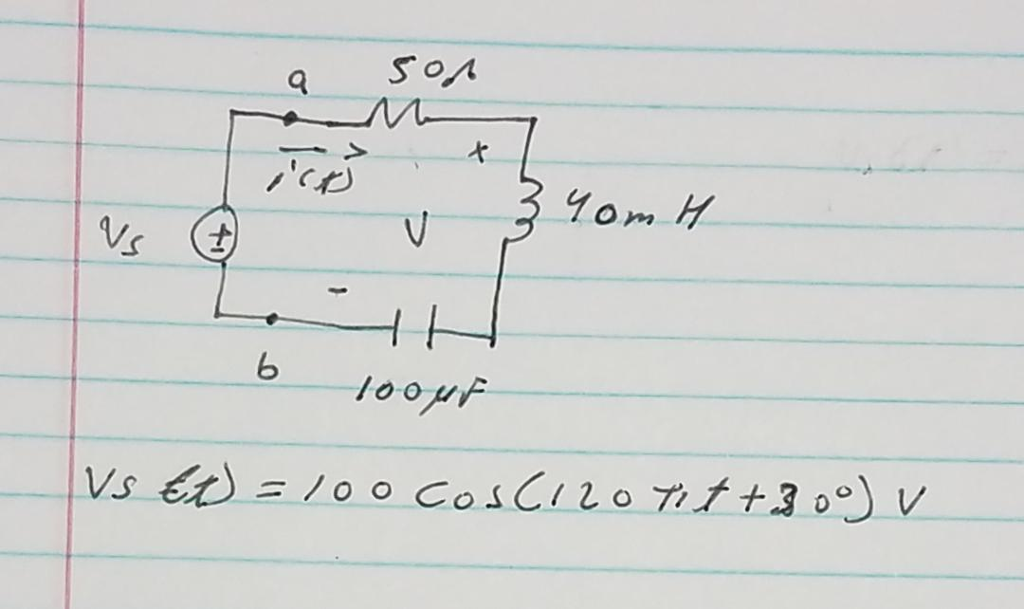 a
50Ω
i(t)
+
Vs
±
V
40mH
-
b
100μF
Vs(t) = 100 cos(120πt+30°) V